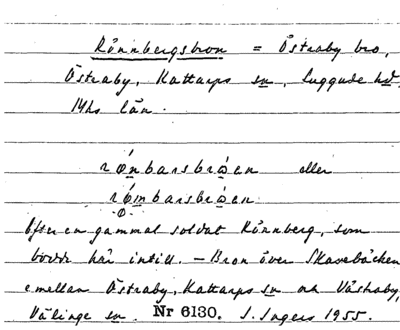 Rönnbergsbron = Östraby bro,
Östraby, Kattarps sn, Luggude hd,
Mhs län.
eller
Efter en gammal soldat Rönnberg, som
bodde här intill. – Bron över Skavebäcken
emellan Östraby, Kattarps sn och Västraby,
Välinge sn. Nr 6130. I. Ingers 1955.